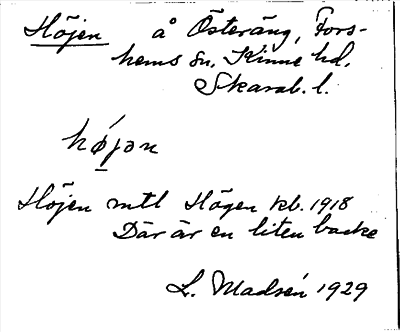 Höjen å Österäng, Fors-
hems sn. Kinne hd.
Skarab. l.
hǿjən
Höjen mtl Högen kb. 1918
Där är en liten backe
L. Madsén 1929